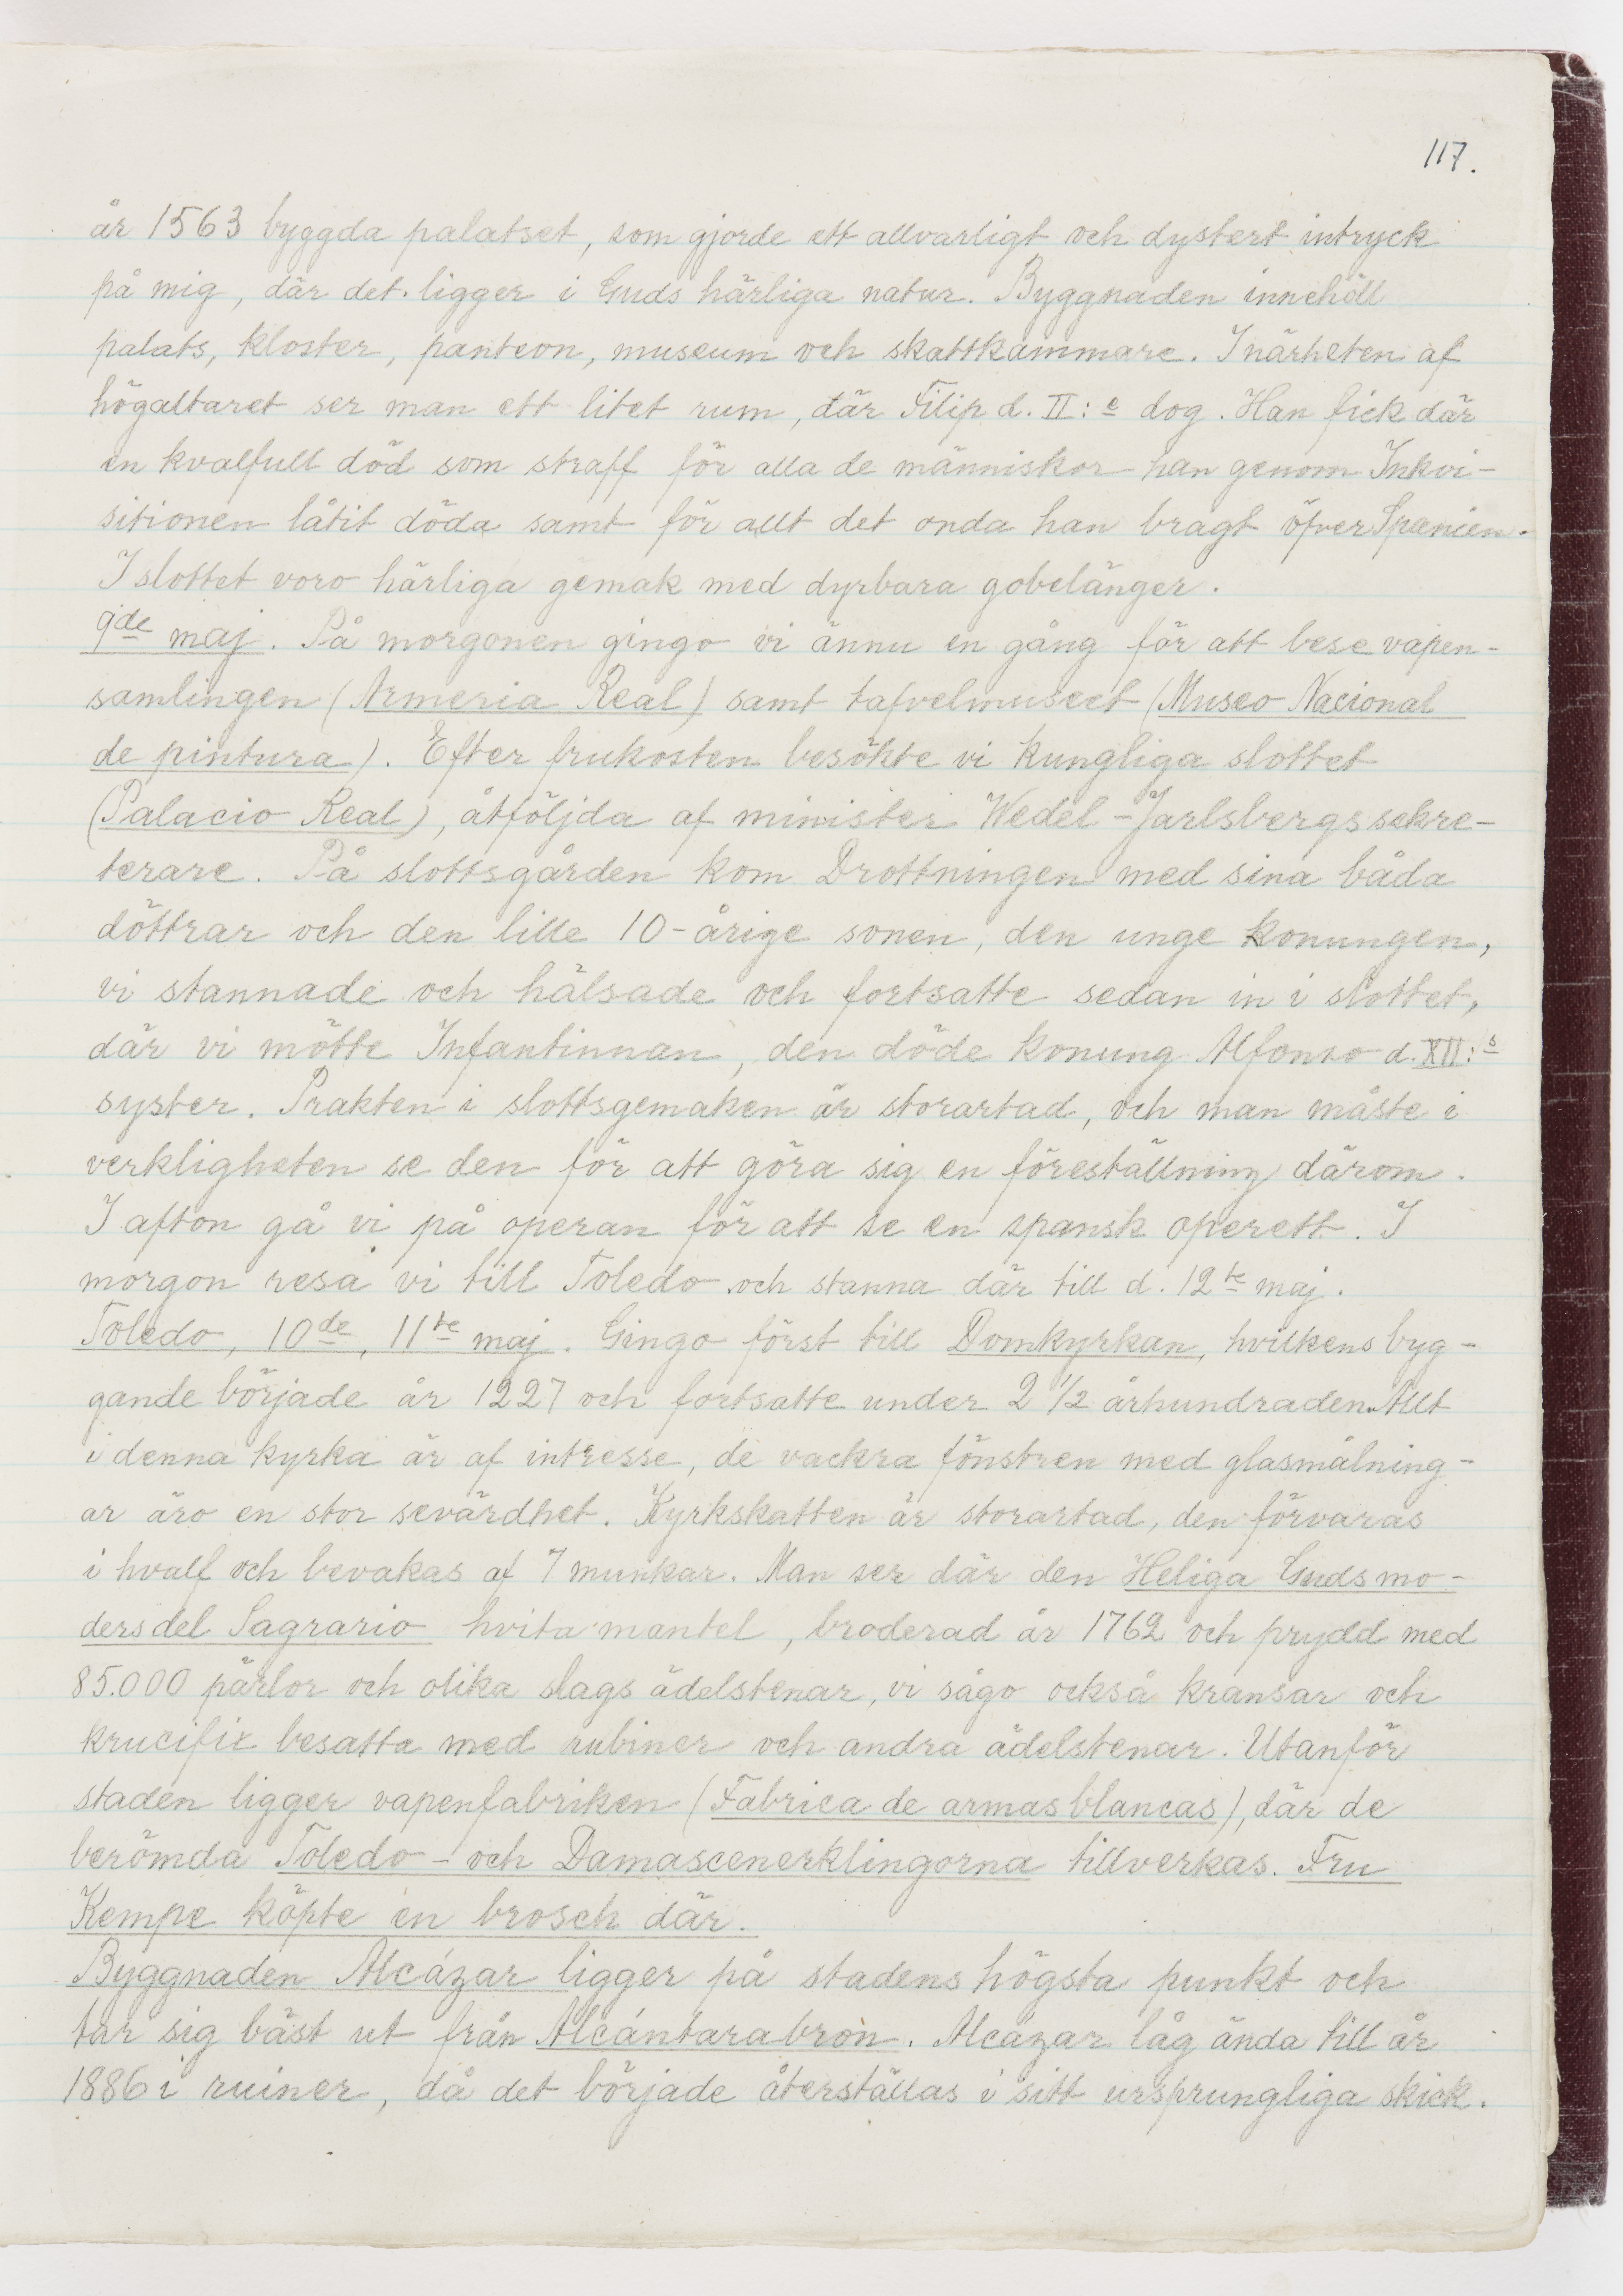 117.
år 1563 byggda palatset, som gjorde ett allvarligt och dystert intryck
på mig, där det ligger i Guds härliga natur. Byggnaden innehöll
palats, kloster, panteon, museum och skattkammare. I närheten af
högaltaret ser man ett litet rum, där Filip d. II:e dog. Han fick där
en kvalfull död som straff för alla de människor han genom Inkvi-
sitionen låtit döda samt för allt det onda han bragt öfver Spanien.
I slottet voro härliga gemak med dyrbara gobelänger.
9de maj. På morgonen gingo vi ännu en gång för att bese vapen-
samlingen (Armeria Real) samt tafvelmuseet (Museo Nacional
de pintura). Efter frukosten besökte vi kungliga slottet
(Palacio Real), åtföljda af minister Wedel-Jarlsbergs sekre-
terare. På slottsgården kom Drottningen med sina båda
döttrar och den lille 10-årige sonen, den unge konungen,
vi stannade och hälsade och fortsatte sedan in i slottet,
där vi mötte Infantinnan, den döde konung Alfonso d. XII:s
syster. Prakten i slottsgemaken är storartad, och man måste i
verkligheten se den för att göra sig en föreställning därom.
I afton gå vi på operan för att se en spansk operett. I
morgon resa vi till Toledo och stanna där till d. 12te maj.
Toledo, 10de, 11te maj. Gingo först till Domkyrkan, hvilkens byg-
gande började år 1227 och fortsatte under 2 1/2 århundraden. Allt
i denna kyrka är af intresse, de vackra fönstren med glasmålning-
ar äro en stor sevärdhet. Kyrkskatten är storartad, den förvaras
i hvalf och bevakas af 7 munkar. Man ser där den Heliga Guds mo-
ders del Sagrario hvita mantel, broderad år 1762 och prydd med
85.000 pärlor och olika slags ädelstenar, vi sågo också kransar och
krucifix besatta med rubiner och andra ädelstenar. Utanför
staden ligger vapenfabriken (Fabrica de armas blancas), där de
berömda Toledo- och Damascenerklingorna tillverkas. Fru
Kempe köpte en brosch där.
Byggnaden Alcázar ligger på stadens högsta punkt och
tar sig bäst ut från Alcántarabron. Alcázar låg ända till år
1886 i ruiner, då det började återställas i sitt ursprungliga skick.